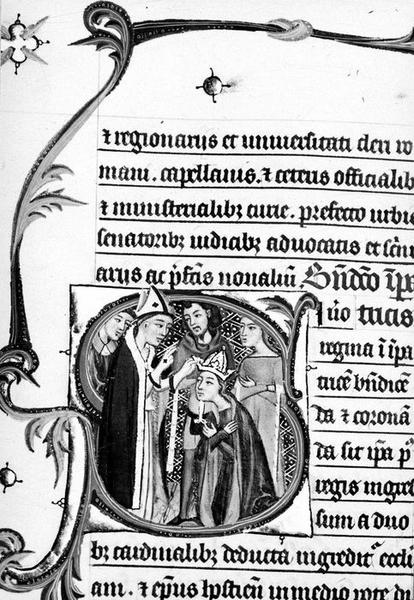 ⁊ regionarijs et uniuersitati cleri ro
mani. capellanis. ⁊ ceteris officialib
⁊ ministerialibꝫ curie. prefecto urbis
senatoribꝫ iudicibꝫ aduocatis et scrin
arijs ac
regina
bndice
da ⁊ coronā
da sit ipa
regis ingre
sum a duo
bꝫ cardinalibꝫ deducta ingredit eccli
am. ⁊ ep̄us in medio rote di